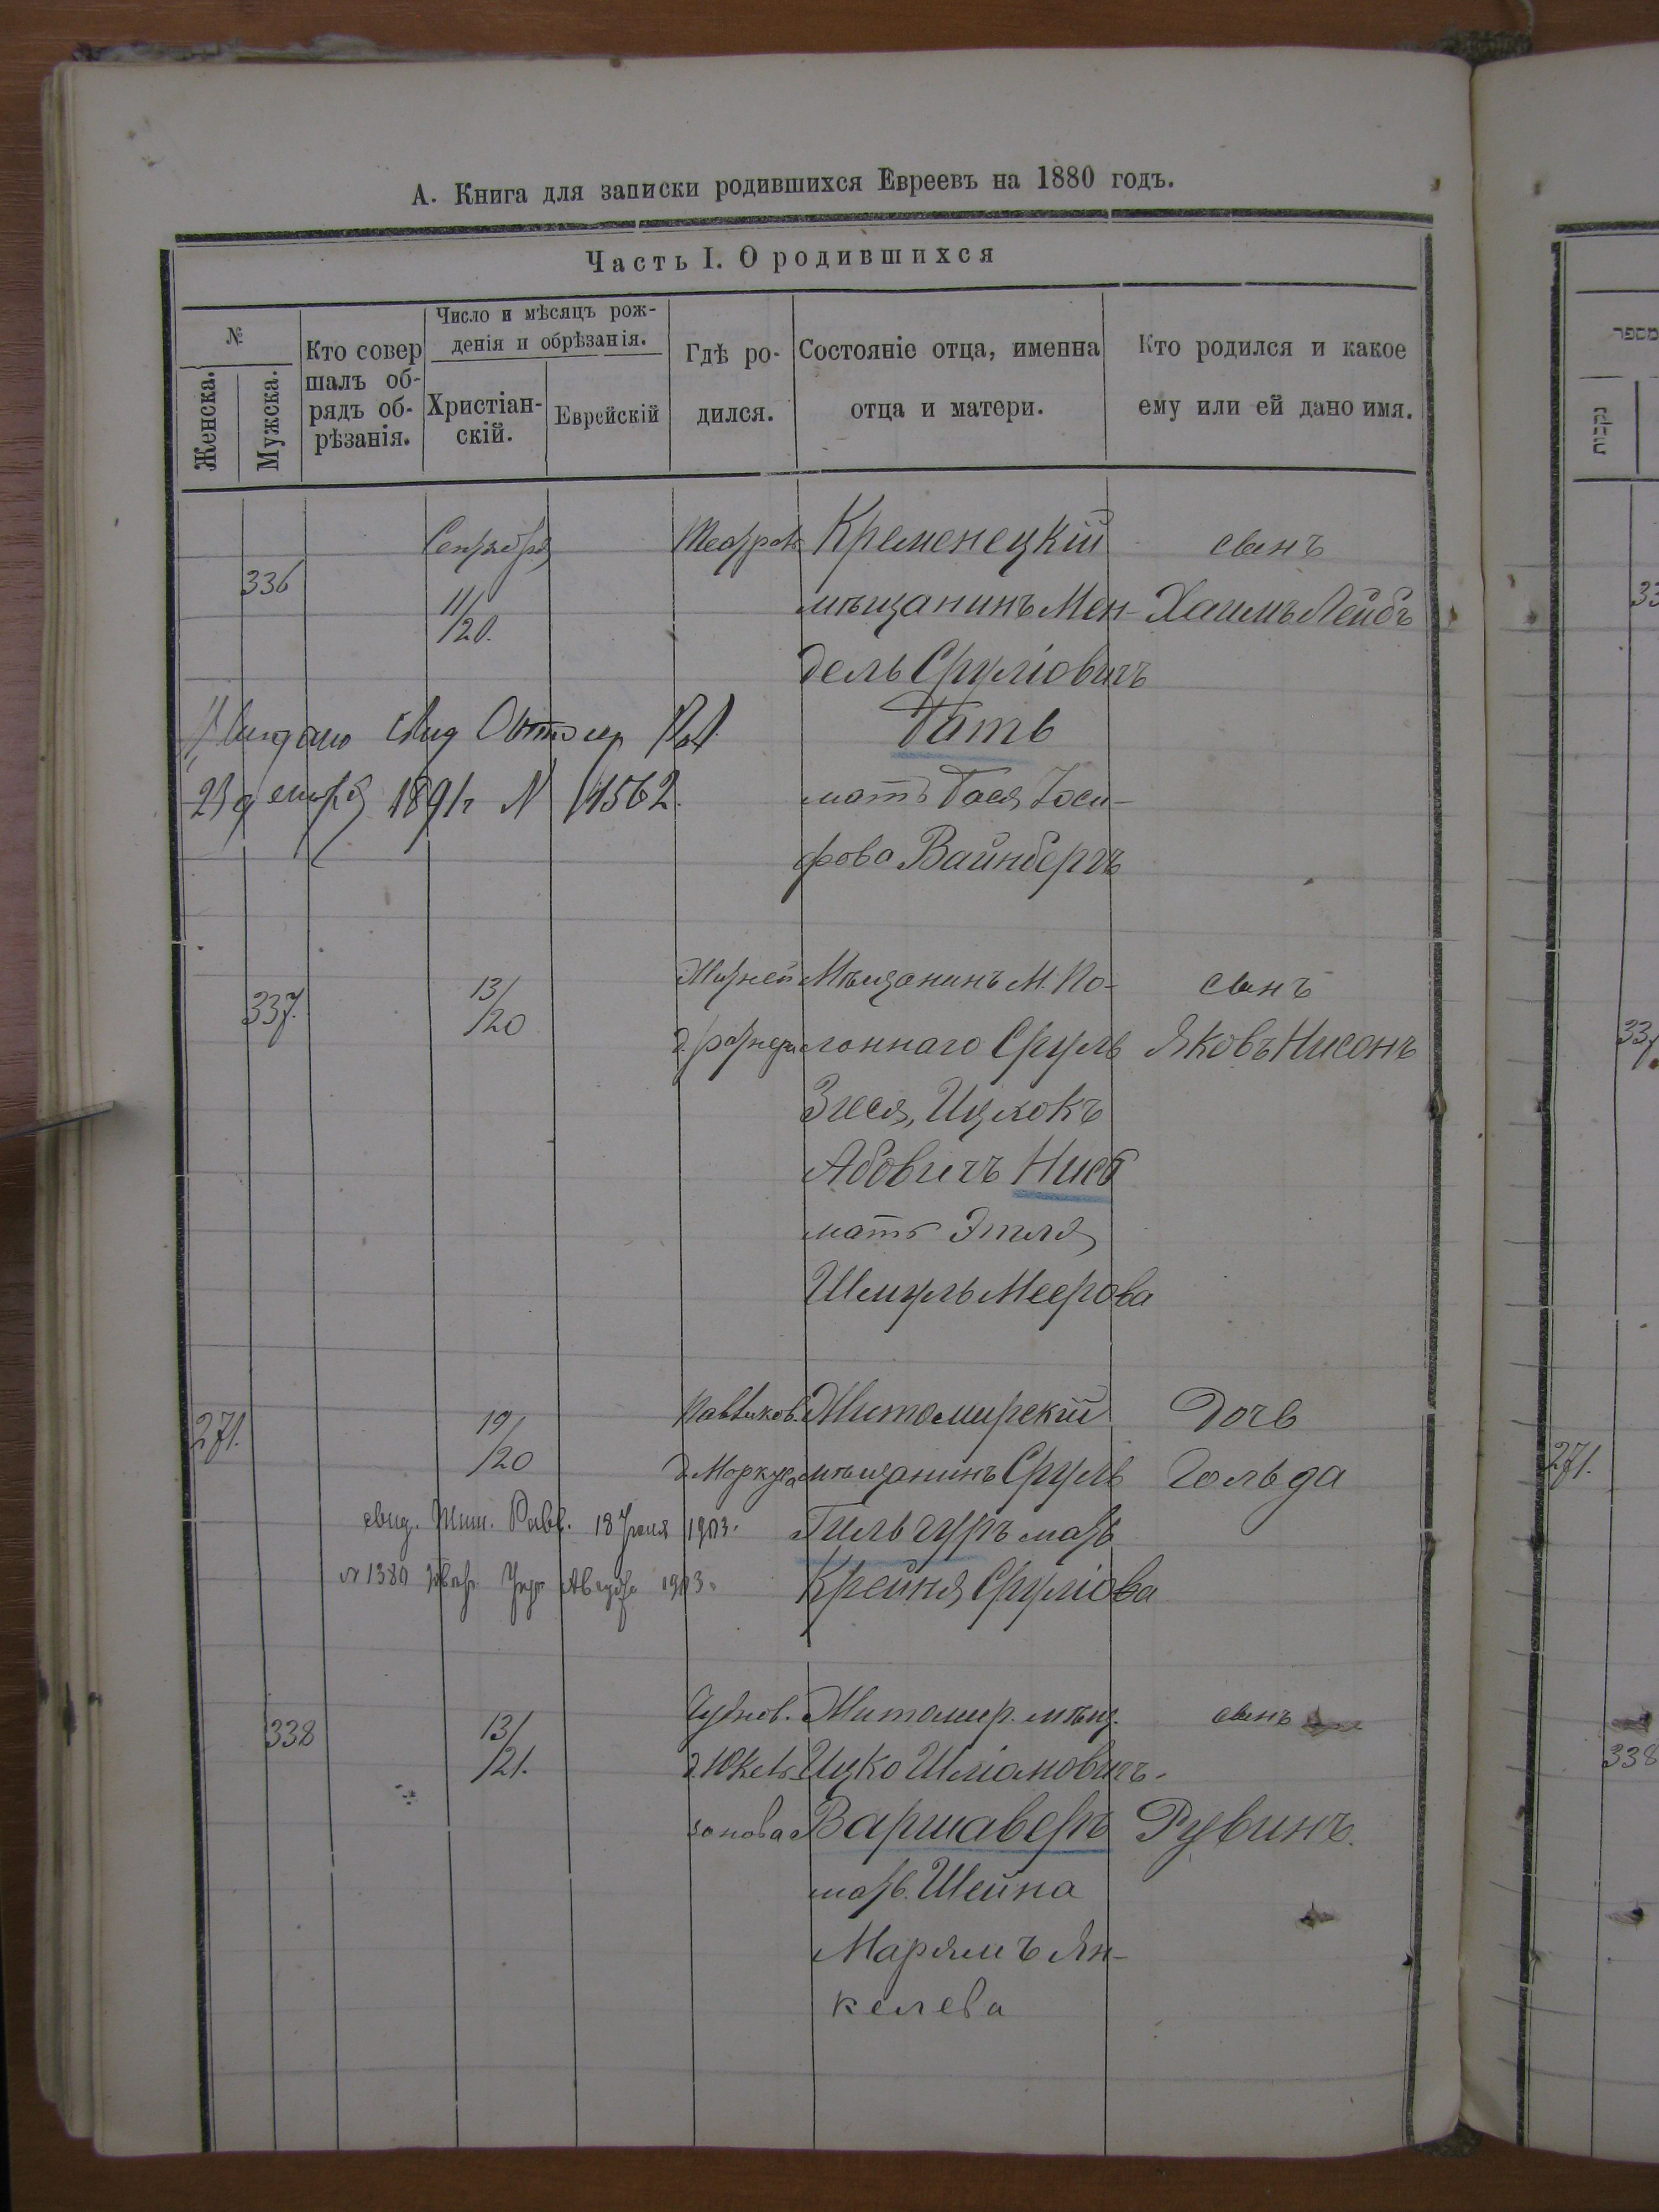 А. Книга для записки родившихся Евреевъ на 1880 годъ.
Часть I. О родившихся
№
Женска.
Мужска.
Кто совер
шалъ об-
рядъ об-
рѣзанія.
Число и мѣсяцъ рож-
денія и обрѣзанія.
Христіан-
скій.
Еврейскій
Гдѣ ро-
дился.
Состояніе отца, именна
отца и матери.
Кто родился и какое
ему или ей дано имя.
336
Сентября
11/
/20.
Театрал.
Кременецкій
мѣщанинъ Мен-
дель Сруліовичъ
Батъ
мать Бася Іоси-
фова Вайнбергъ
сынъ
Хаимъ Лейбъ
23 1891г N 1562.
337.
13/
/20
Мѣщанинъ М. По-
лоннаго Сруль
Зися, Ицхокъ
Абовичъ Нисъ
мать Этля
Шмуль Меерова
сынъ
Яковъ Нисонъ
271.
19/
/20
Житомирскій
мѣщанинъ Сруль
Гильгуръ мать
Крейня Сруліова
Дочь
Гольда
свид. Жит. Равв. 18 Іюля 1903.
N 1380 1903.
338
13/
/21.
Чуднов.
Житомир. мѣщ.
Ицко Шліомовичъ.
Варшаверъ
мать. Шейна
Марямъ Ян-
келева
сынъ
Рувинъ.
מספר
נקבות
271.
338